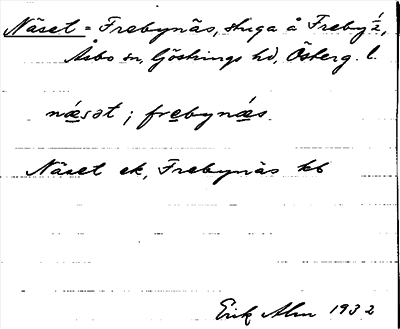 Näset = Frebynäs, stuga å Freby 1/2,
Åsbo sn, Göstrings hd, Österg. l.
næsət ; frebynæs.
Näset ek, Frebynäs kb
Erik Alm 1932